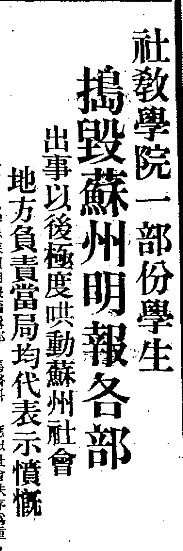 社教學院一部份學生
搗毀蘇州明報各部
出事以後極度哄動蘇州社會
地方負責當局均代表示憤慨